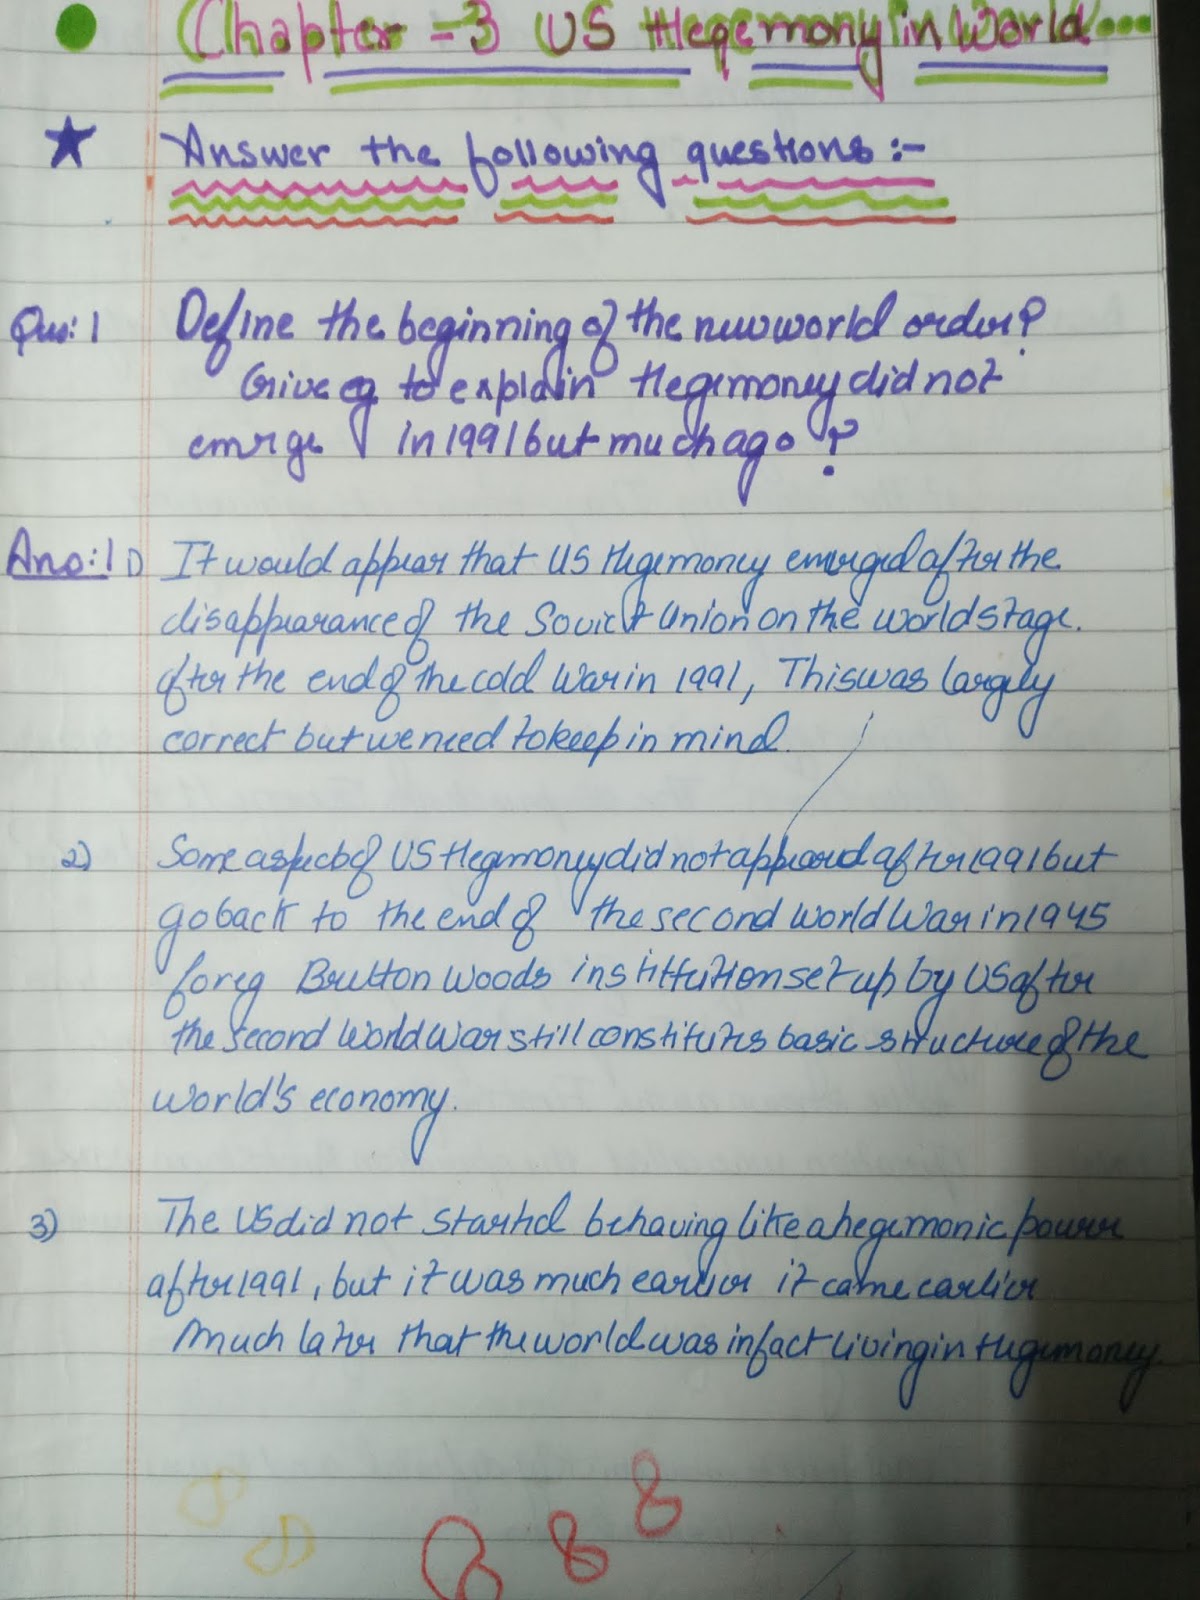 Chapter -3 US Hegemony in World...
Answer the following questions:-
Que:1 Define the beginning of the new world order?
Give eg to explain Hegemoney did not
emerge in 1991 but much ago?
Ans:1 1) It would appear that US Hegemoney emerged after the
disappearance of the Soviet Union on the world stage.
after the end of the cold War in 1991, This was largely
correct but we need to keep in mind.
2) Some aspects of US Hegemoney did not appeared after 1991 but
go back to the end of the second world War in 1945
for eg Bretton Woods instittution set up by US after
the second World War still constitutes basic structure of the
world's economy.
3) The US did not started behaving like a hegemonic power
after 1991, but it was much earlier it came earlier
Much later that the world was infact living in Hegemoney